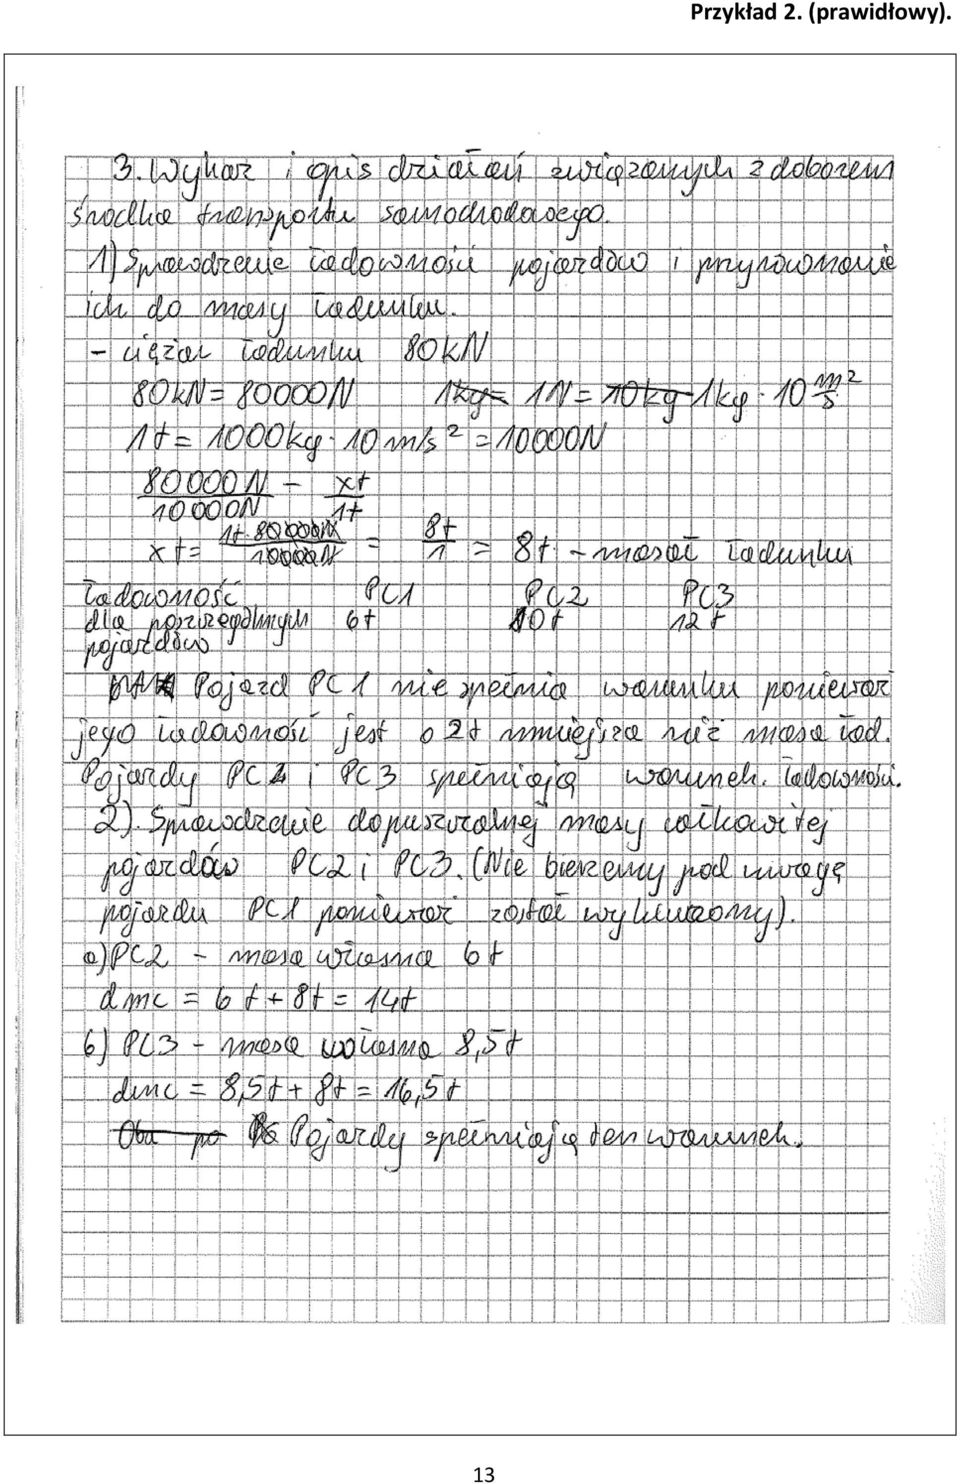 Przykład 2. (prawidłowy).
3. Wykaz i opis działań związanych z doborem
środka transportu samochodowego.
1) Sprawdzenie ładowności pojazdów i przyrównanie
ich do masy ładunku.
- ciężar ładunku 80kN
80kN = 80000N 1kg = 1N = 10kg 1kg · 10 m/s²
1t = 1000kg · 10 m/s² = 10000N
80000N/10000N - xt/1t
xt = 1t·80000N/10000N = 8t/1 = 8t - masał ładunku
ładowność PC1 PC2 PC3
dla poszczególnych 6t 10t 12t
pojazdów
Pojazd PC1 nie spełnia warunku ponieważ
jego ładowność jest o 2t mniejsza niż masa ład.
Pojazdy PC2 i PC3 spełniają warunek. ładowności.
2). Sprawdzenie dopuszczalnej masy całkowitej
pojazdów PC2 i PC3. (Nie bierzemy pod uwagę
pojazdu PC1 ponieważ został wykluczony).
a) PC2 - masa własna 6t
dmc = 6t + 8t = 14t
b) PC3 - masa własna 8,5t
dmc = 8,5t + 8t = 16,5t
Oba po Pojazdy spełniają ten warunek.
13